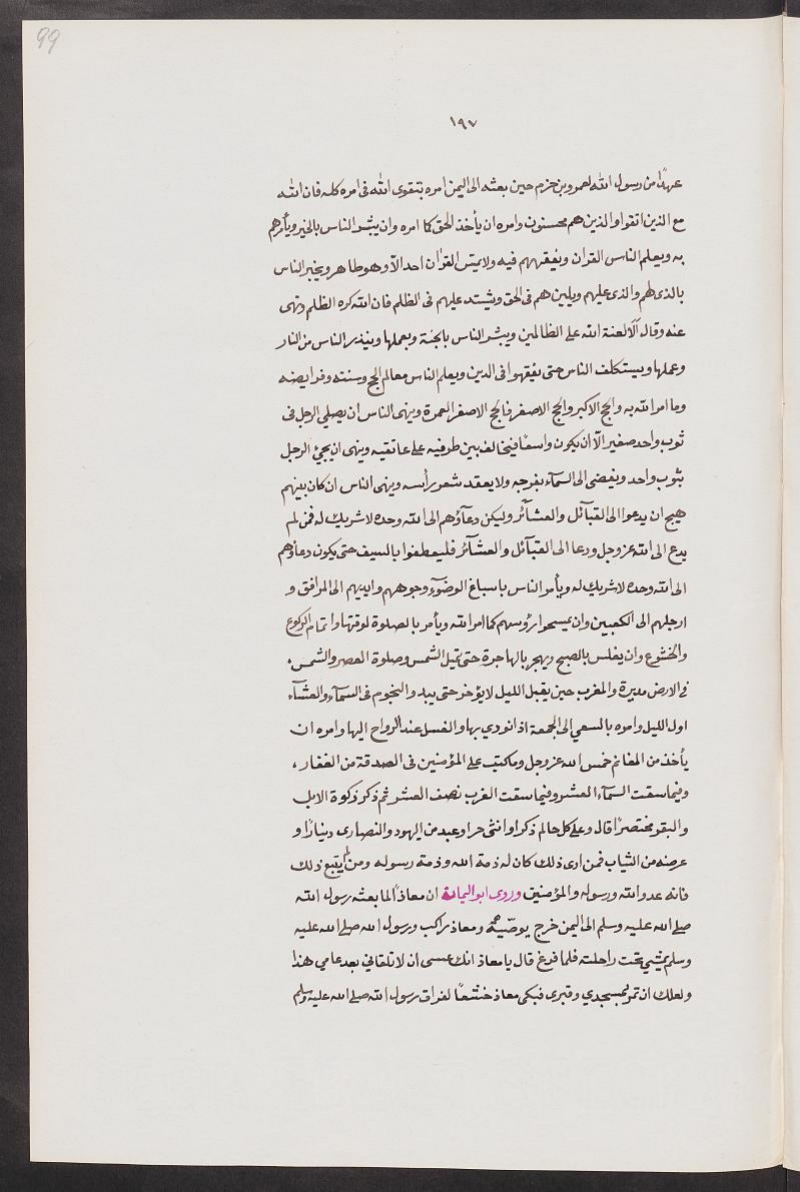 99
١٩٧
عهدًا من رسول الله لعمرو بن حزم حين بعثه الى اليمن امره بتقوى الله فى امره كله فان الله
مع الذين اتقوا والذين هم محسنون وامره ان يأخذ الحق كما امره وان يبشر الناس بالخير ويأمرهم
به ويعلم الناس القران ويفقههم فيه ولا يمس القرٰان احد الاّ وهو طاهر ويخبر الناس
بالذى لهم والذى عليهم ويلين هم فى الحق ويشتد عليهم فى الظلم فان الله كره الظلم ونهى
عنه وقال اَلَا لعنة الله على الظالمين ويبشر الناس بالجنة وبعملها وينذر الناس من النار
وعملها ويستكلف الناس حتى يفقهوا فى الدين ويعلم الناس معالم الحج وسنته وفرايضه
وما امر الله به والحج الاكبر والحج الاصغر فالحج الاصغر العمرة وينهى الناس ان يصلى الرجل فى
ثوب واحد صغير الاّ ان يكون واسعًا فيخالف بين طرفيه على عاتقيه وينهى ان يجئ الرجل
بثوب واحد ويفضى الى السمآء بفرجه ولا يعقد شعر رأسه وينهى الناس ان كان بينهم
هيج ان يدعوا الى القبآئل والعشآئر وليكن دعآؤهم الى الله وحده لا شريك له فمن لم
يدع الى الله عز وجل ودعا الى القبآئل والعشآئر فليعطفوا بالسيف حتى يكون دعاؤهم
الى الله وحده لا شريك له ويأمر الناس باسباغ الوضوٓء وجوههم وايديهم الى المرافق و
ارجلهم الى الكعبين وان يمسحوا برؤسهم كما امر الله ويأمر بالصلوة لوقتها واتمام الركوع
والخشوع وان يغلس بالصبح ويهجر بالهاجرة حتى تميل الشمس وصلوة العصر والشمس
فى الارض مديرة والمغرب حين يقبل الليل لا يؤخر حتى يبدو النجوم فى السمآء والعشآء
اول الليل وامره بالسعى الى الجمعة اذا نودي بها والغسل عند الرواح اليها وامره ان
يأخذ من المغانم خمس الله عز وجل وما كتب على المؤمنين فى الصدقة من العقار
وفيما سقت السمآء العشر وفيما سقت الغرب نصف العشر ثم ذكر زكوة الابل
والبقر مختصرًا قال وعلى كل حالم ذكر او انثى حر او عبد من اليهود والنصارى دينارًا و
عرضه من الثياب فمن ادى ذلك كان له ذمة الله وذمة رسوله ومن لم يتبع ذلك
فانه عدو الله ورسوله والمؤمنين وروى ابو اليمان ان معاذًا لما بعثه رسول الله
صلى الله عليه وسلم الى اليمن خرج يوصّيه ومعاذ راكب ورسول الله صلى الله عليه
وسلم يمشي تحت راحلته فلما فرغ قال يا معاذ انك عسى ان لا تلقانى بعد عامي هذا
ولعلك ان تمر بمسجدي وقبرى فبكى معاذ خشعًا لفراق رسول الله صلى الله عليه وسلم